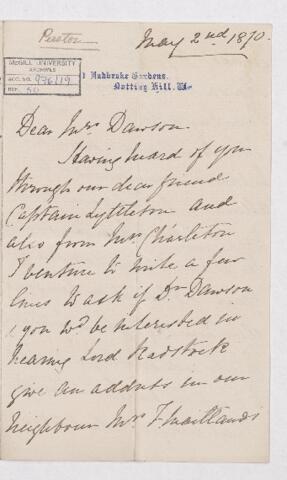 May 2nd 1870.
McGILL UNIVERSITY
ARCHIVES
ACC. NO. 976/19
REF. 50
Ladbroke Gardens.
Notting Hill. W.
Dear Mrs Dawson.
Having heard of you
through our dear friend
Captain Lyttleton and
also from Mrs Charleton
I venture to write a few
lines to ask if Dr Dawson
& you wd be interested in
hearing Lord Radstock
give an address in our
neighbour Mrs F. Maitlands